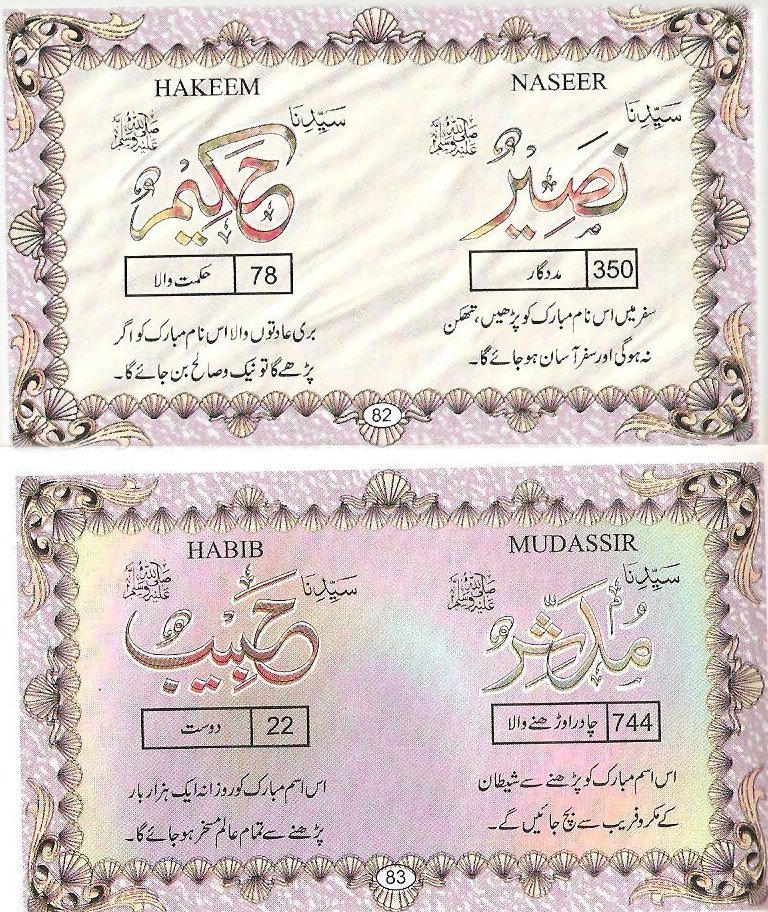 NASEER
سیّدنا
نصیر
صلی اللہ علیہ وسلم
350 مددگار
سفر میں اس نام مبارک کو پڑھیں، تھکن
نہ ہوگی اور سفر آسان ہو جائے گا۔
HAKEEM
سیّدنا
حکیم
صلی اللہ علیہ وسلم
78 حکمت والا
بری عادتوں والا اس نام مبارک کو اگر
پڑھے گا تو نیک و صالح بن جائے گا۔
82
MUDASSIR
سیّدنا
مُدَثِّر
صلی اللہ علیہ وسلم
744 چادر اوڑھنے والا
اس اسم مبارک کو پڑھنے سے شیطان
کے مکر و فریب سے بچ جائیں گے۔
HABIB
سیّدنا
حبیب
صلی اللہ علیہ وسلم
22 دوست
اس اسم مبارک کو روزانہ ایک ہزار بار
پڑھنے سے تمام عالم مسخر ہو جائے گا۔
83